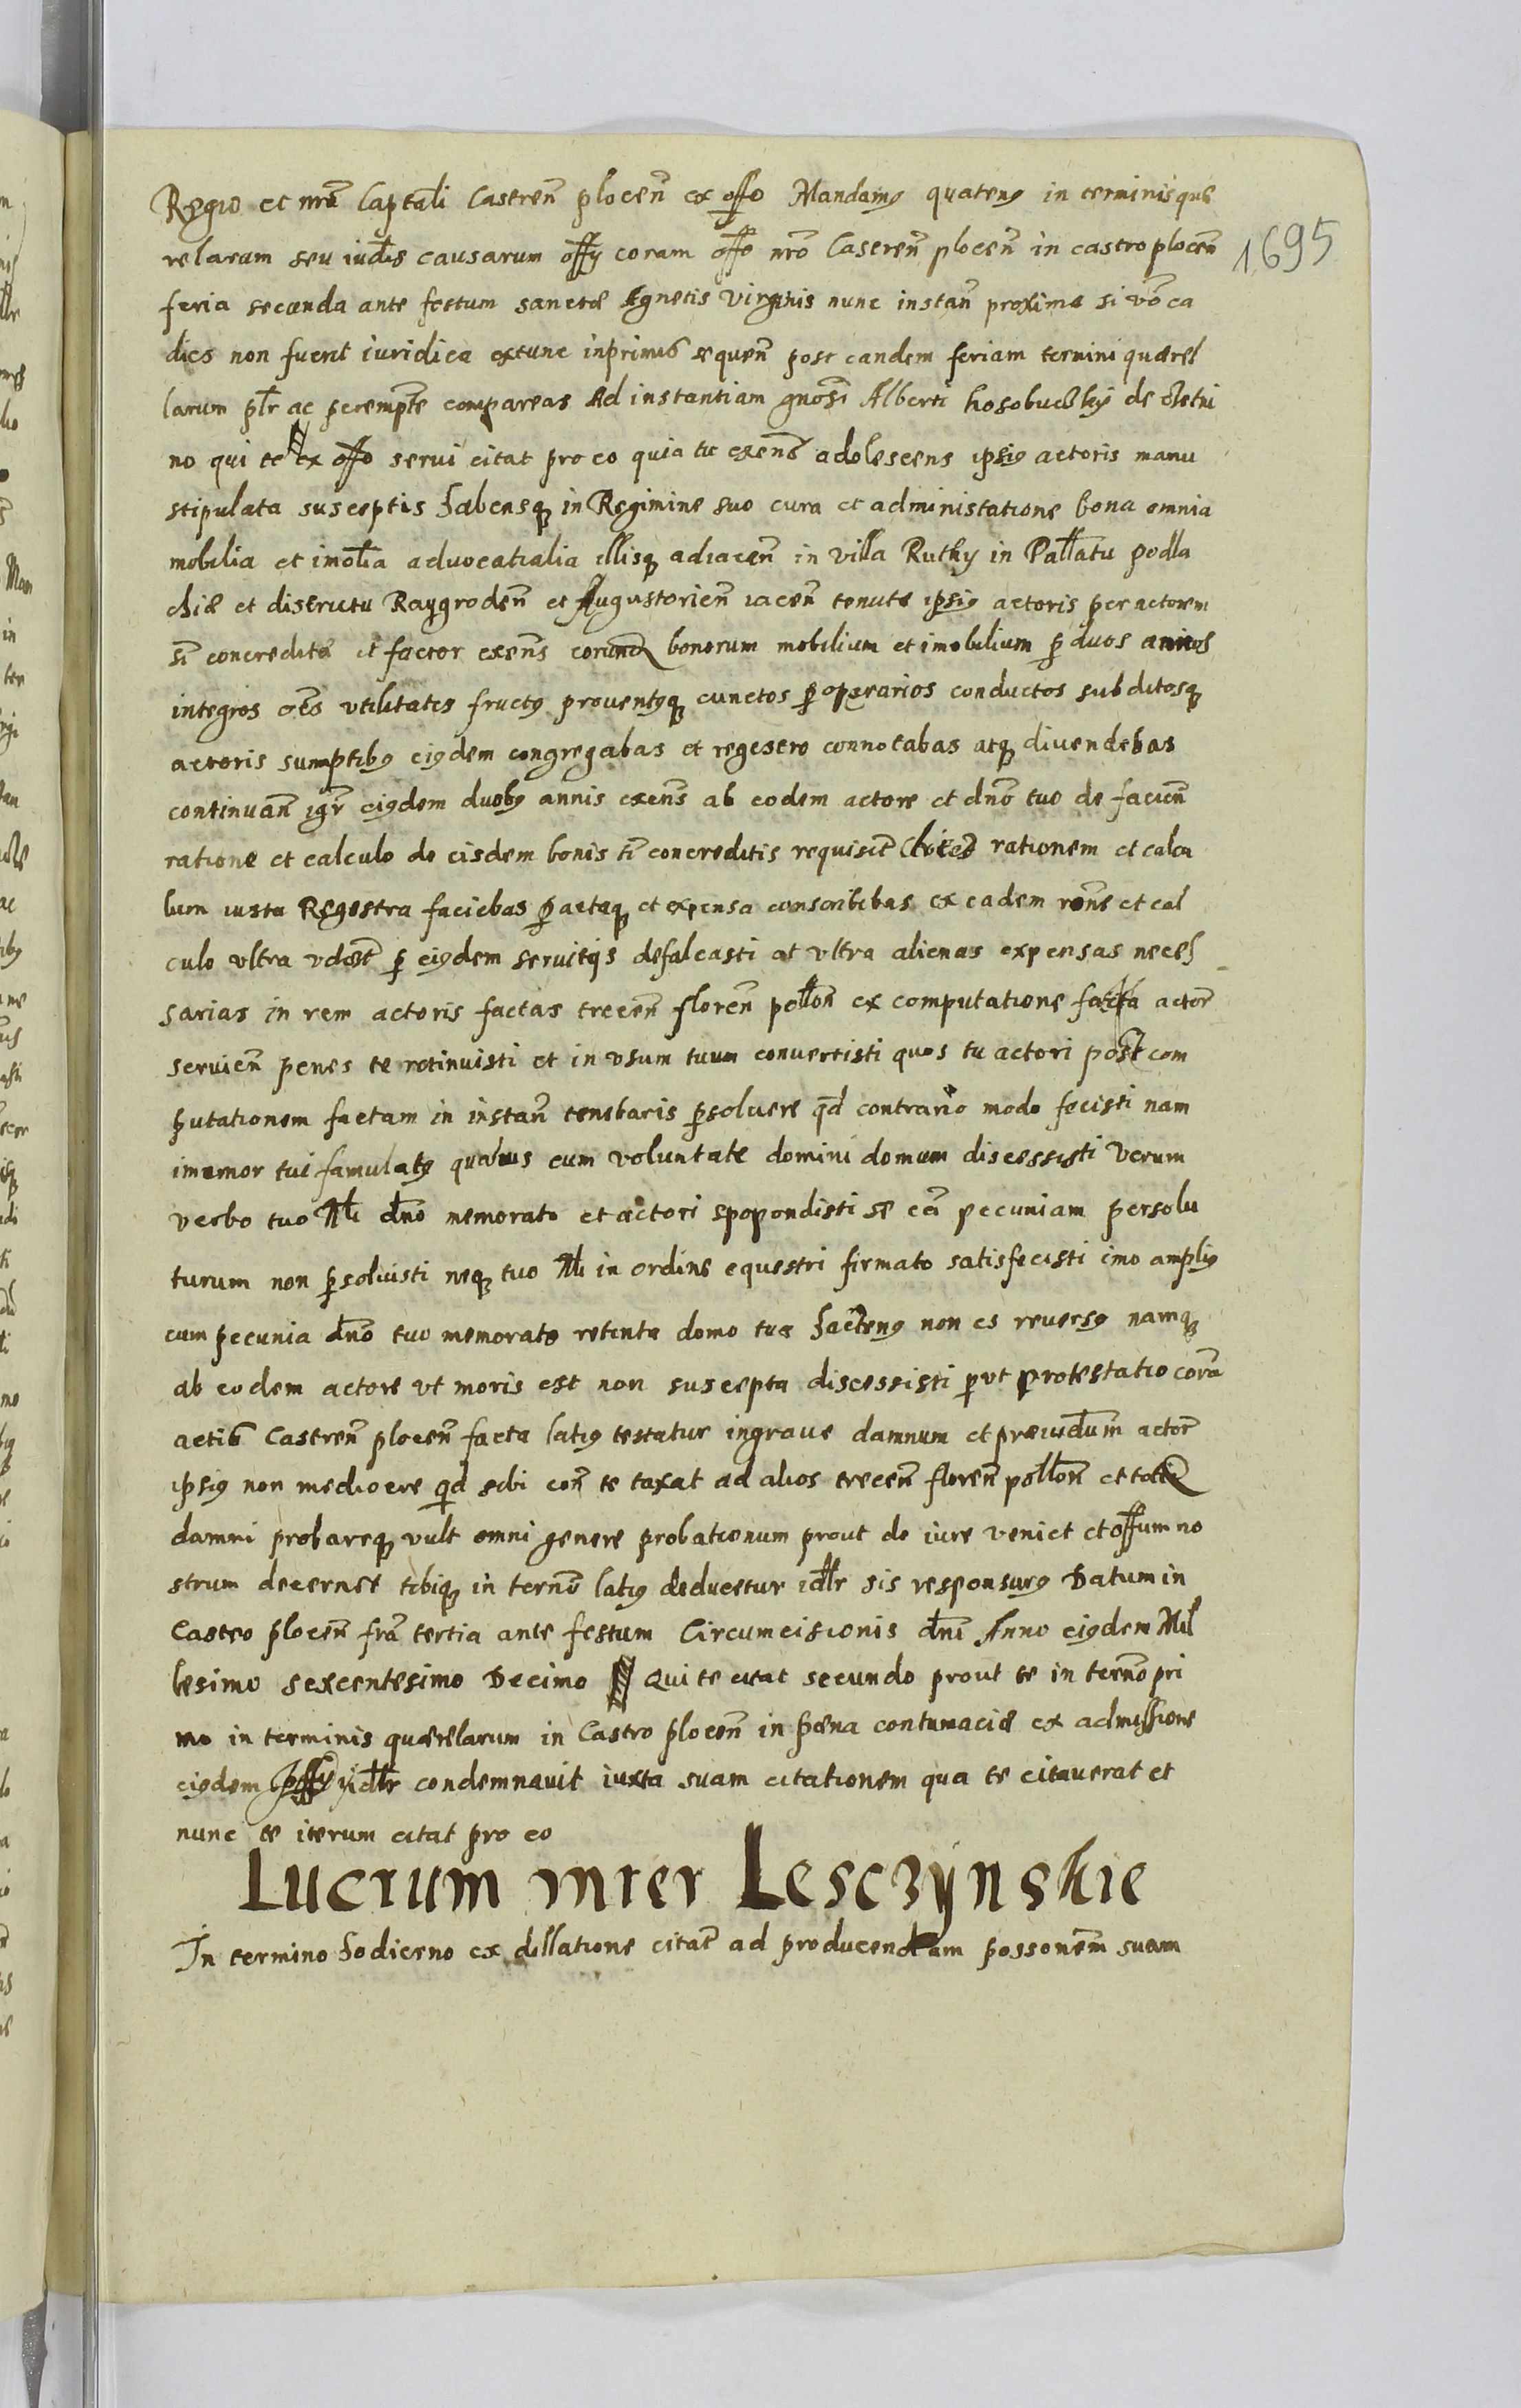 Regio et nrã Captali Castreñploceñ ex offo Mandamꝰ quatenꝰ in terminis que
relarum seu iudis causarum offy coram offo nro Castreñ ploceñ in castro ploceñ
1695
feria secunda ante festum sanctæ Agnetis Virginis nunc instañ proxime si vo ea
dies non fuerit iuridica extunc inprimis sequeñ post eandem feriam termini quærel
larum plr ac perempte compareas Ad instantiam gnosi Alberti Kosobuczky de
no qui te ex offo servi citat pro eo quia tu exens adolescens ipsiꝰ actoris manu
stipulata susceptis habensq in Regimine suo cura et administatione bona omnia
mobilia et imobia advocatialia illisq adiaceñ in villa Rutky in Pallatu podla
chiæ et districtu Raygrodeñ et Augustovieñ iaceñ tenute ipsiꝰ actoris per actorem
ti concredita et factor exens eorund bonorum mobilium et imobilium p duos annos
integros oes vtilitates fructꝰ proventꝰq cunctos p operarios conductos subditosq
actoris sumptibꝰ eiꝰdem congregabas et regestro connotabas atq divendebas
continuañ igr eiꝰdem duobꝰ annis exens ab eodem actore et dno tuo de facieñ
ratione et calculo de eisdem bonis ti concreditis requisit licet rationem et calcu
lum iuxta Regestra faciebas pactaq et expensa conscribebas ex eadem rone et cal
culo vltra p eiꝰdem servitꝰs defalcasti at vltra alienas expensas neces
sarias in rem actoris factas treceñ floreñ polloñ ex computatione facta actor
servieñ penes te retinuisti et in vsum tuum convertisti quos tu actori post com
putationem factam in instañ tenebaris psolvere qd contrario modo fecisti nam
imemor tui famulatꝰ quamvis cum voluntate domini domum discessisti verum
verbo tuo Nli dno memorato et actori spopondisti se eã pecuniam persolu
turum non psolvisti neq tuo Nli in ordine equestri firmato satisfecisti imo ampliꝰ
cum pecunia dno tuo memorato retenta domo tua hactenꝰ non es reversꝰ namq
ab eodem actore vt moris est non suscepta discessisti put protestatio corã
actis Castreñ ploceñ facta latiꝰ testatur in grave damnum et præiudium actor
ipsiꝰ non mediocre qd sibi con te taxat ad alios treceñ floreñ polloñ et totid
damni probareq vult omni genere probationum prout de iure veniet et offum no
strum decernet tibiq in terno latiꝰ deducetur idlr sis responsurꝰ Datum in
Castro ploceñ frã tertia ante festum Circumcisionis dni Anno eiꝰdem Mil
lesimo sexcentesimo Decimo Qui te citat secundo prout te in terno pri
mo in terminis quærelarum in Castro ploceñ in pæna contumaciæ ex admissione
eiꝰdem offy iidlr condemnavit iuxta suam citationem qua te citaverat et
nunc te iterum citat pro eo
Lucrum inter Lesczÿnskie
In termino hodierno ex dillatione citat ad producendam possonem suam